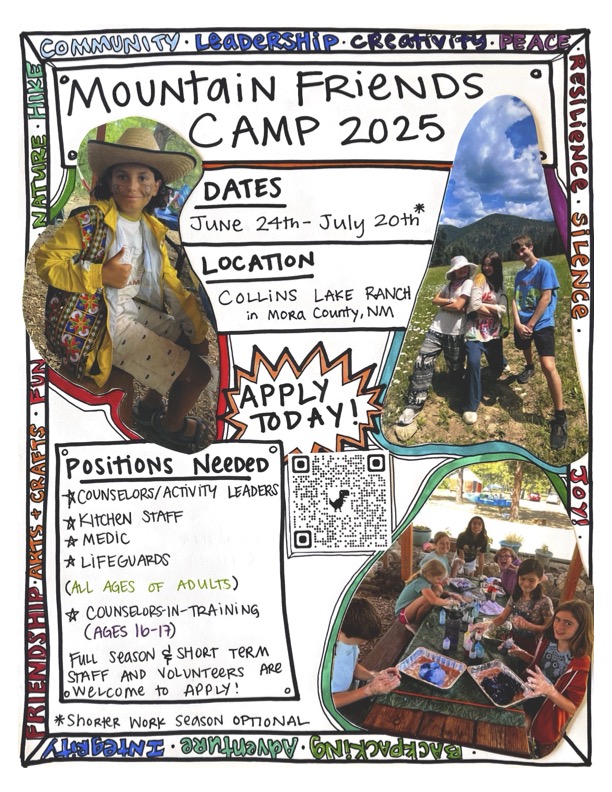 COMMUNITY · LEADERSHIP · CREATIVITY · PEACE
RESILIENCE · SILENCE · JOY! ·
NATURE · HIKE
FRIENDSHIP · ARTS + CRAFTS · FUN
MOUNTAIN FRIENDS
CAMP 2025
DATES
June 24th - July 20th*
LOCATION
COLLINS LAKE RANCH
in Mora County, NM
APPLY
TODAY!
POSITIONS NEEDED
☆ COUNSELORS/ACTIVITY LEADERS
☆ KITCHEN STAFF
☆ MEDIC
☆ LIFEGUARDS
(ALL AGES OF ADULTS)
☆ COUNSELORS-IN-TRAINING
(AGES 16-17)
FULL SEASON & SHORT TERM
STAFF AND VOLUNTEERS ARE
Welcome to APPLY!
*SHORTER WORK SEASON OPTIONAL
BACKPACKING · Adventure · INTEGRITY